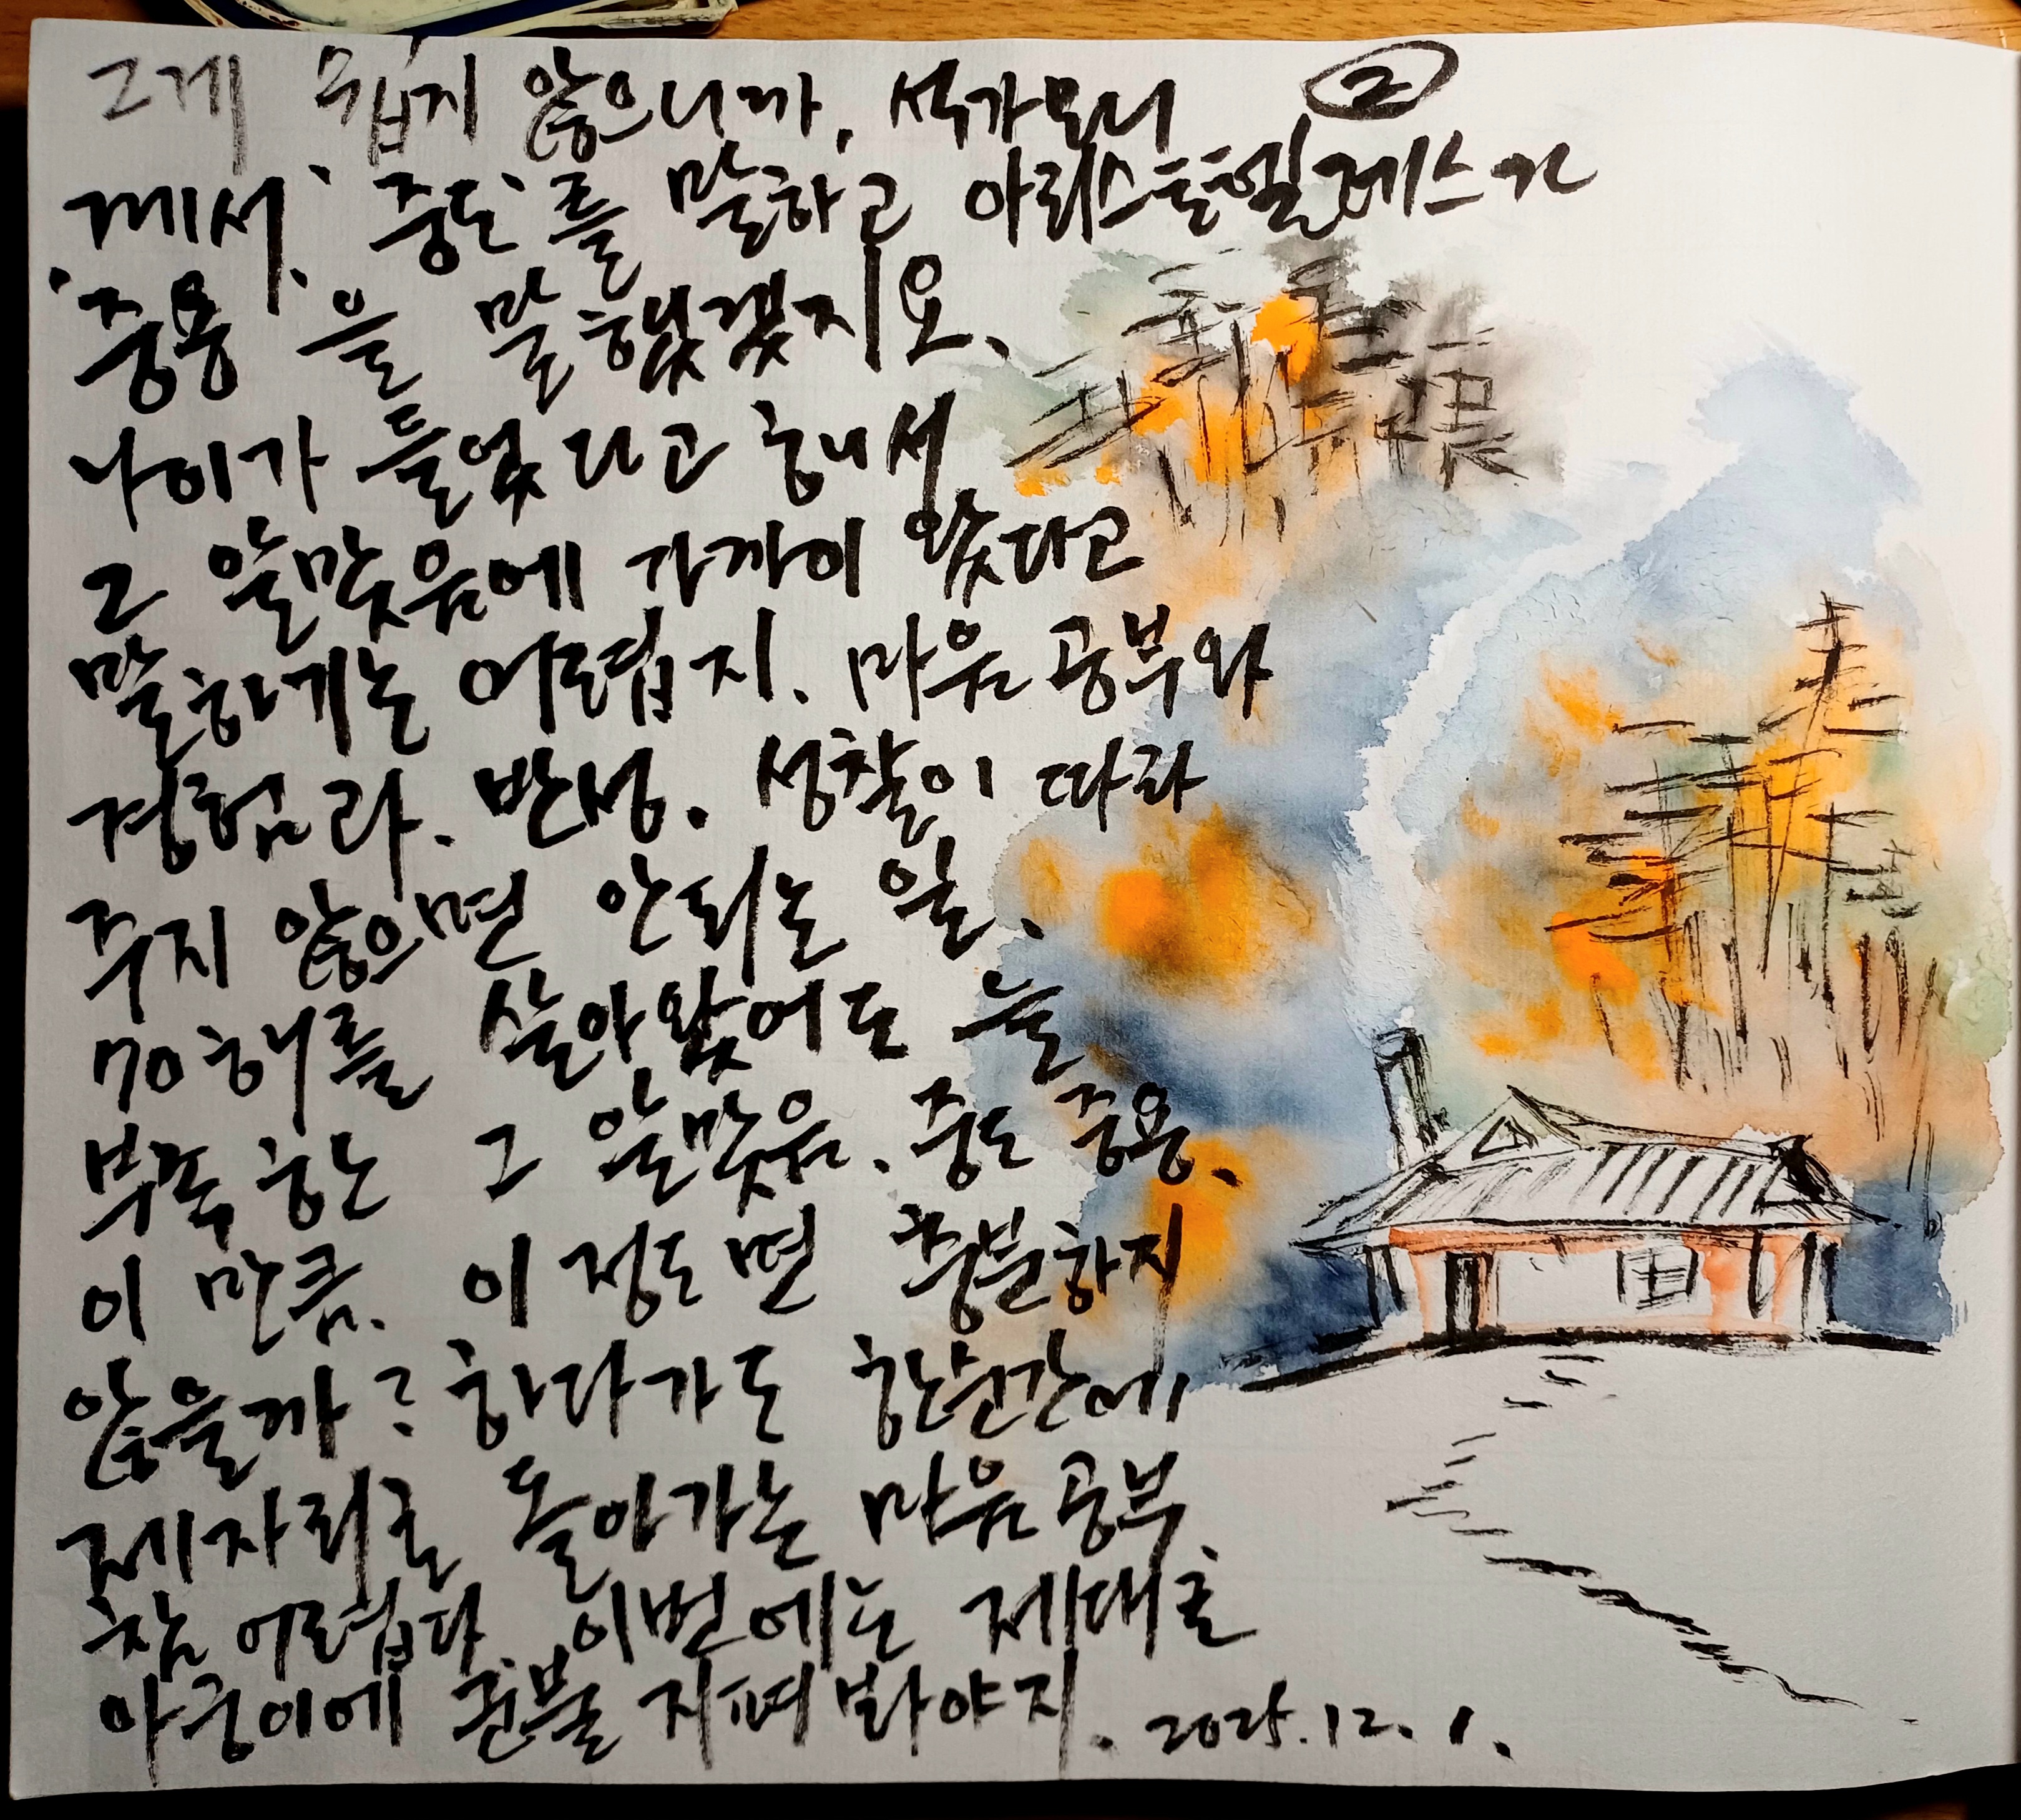 ②
그게 쉽지 않으니까, 석가모니
께서 '중도'를 말하고 아리스토텔레스가
'중용'을 말했겠지요.
나이가 들었다고 해서
그 알맞음에 가까이 왔다고
말하게는 어렵지. 마음공부와
경험과. 반성. 성찰이 따라
주지 않으면 안되는 일.
70해를 살아왔어도 늘
부족한 그 알맞음. 중도 중용.
이 만큼. 이 정도면 충분하지
않을까? 하다가도 한순간에
제자리로 돌아가는 마음공부.
참 어렵다. 이번에는 제대로
아궁이에 군불 지펴 봐야지. 2025.12.1.